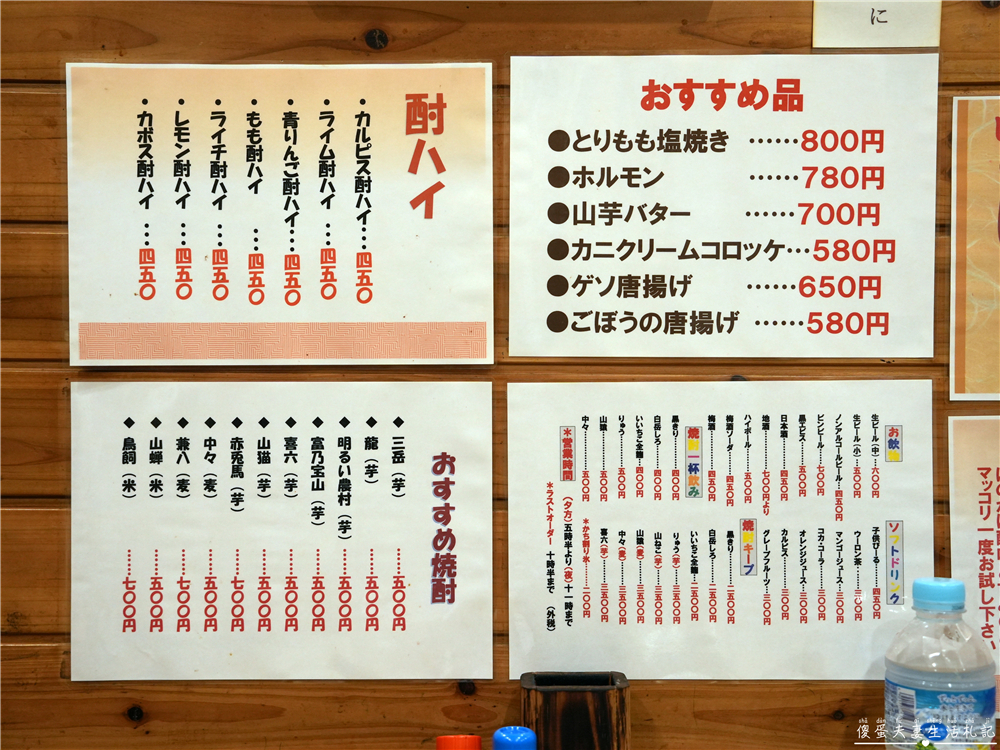 に
酎ハイ
・カルピス酎ハイ…四五〇
・ライム酎ハイ…四五〇
・青りんご酎ハイ…四五〇
・もも酎ハイ…四五〇
・ライチ酎ハイ…四五〇
・レモン酎ハイ…四五〇
・カボス酎ハイ…四五〇
おすすめ品
●とりもも塩焼き ……800円
●ホルモン ……780円
●山芋バター ……700円
●カニクリームコロッケ…580円
●ゲソ唐揚げ ……650円
●ごぼうの唐揚げ ……580円
おすすめ焼酎
◆三岳(芋)……五〇〇円
◆龍(芋)……五〇〇円
◆明るい農村(芋)……五〇〇円
◆富乃宝山(芋)……五〇〇円
◆喜六(芋)……五〇〇円
◆山猫(芋)……五〇〇円
◆赤兎馬(芋)……七〇〇円
◆中々(麦)……五〇〇円
◆兼八(麦)……七〇〇円
◆山蝉(米)……五〇〇円
◆鳥飼(米)……七〇〇円
お飲物
生ビール(中)…六〇〇円
生ビール(小)…五〇〇円
ノンアルコールビール…四五〇円
ビンビール…七〇〇円
黒エビス……五〇〇円
日本酒……四五〇円
地酒……七〇〇円より
ハイボール……五〇〇円
梅酒ソーダ……四五〇円
梅酒……四五〇円
焼酎一杯飲み
黒きり……四〇〇円
白岳しろ……四〇〇円
いいちこ全麹…四〇〇円
りゅう……五〇〇円
山猿……五〇〇円
中々……五〇〇円
ソフトドリンク
子供びーる……四五〇円
ウーロン茶……三〇〇円
マンゴージュース…三〇〇円
コカ・コーラ……三〇〇円
オレンジジュース…三〇〇円
カルピス……三〇〇円
グレープフルーツ…三〇〇円
焼酎キープ
黒きり……二五〇〇円
白岳しろ……二五〇〇円
いいちこ全麹…二五〇〇円
りゅう(芋)…三五〇〇円
山ねこ(芋)…三五〇〇円
山猿(麦)…三五〇〇円
中々(麦)…三五〇〇円
喜六(芋)…三五〇〇円
*かち割り氷……二〇〇円
*営業時間 (夕方)五時半より(夜)十一時まで
*ラストオーダー 十時半まで (外税)
マッコリ一度お試し下さい
傻蛋夫妻生活札記